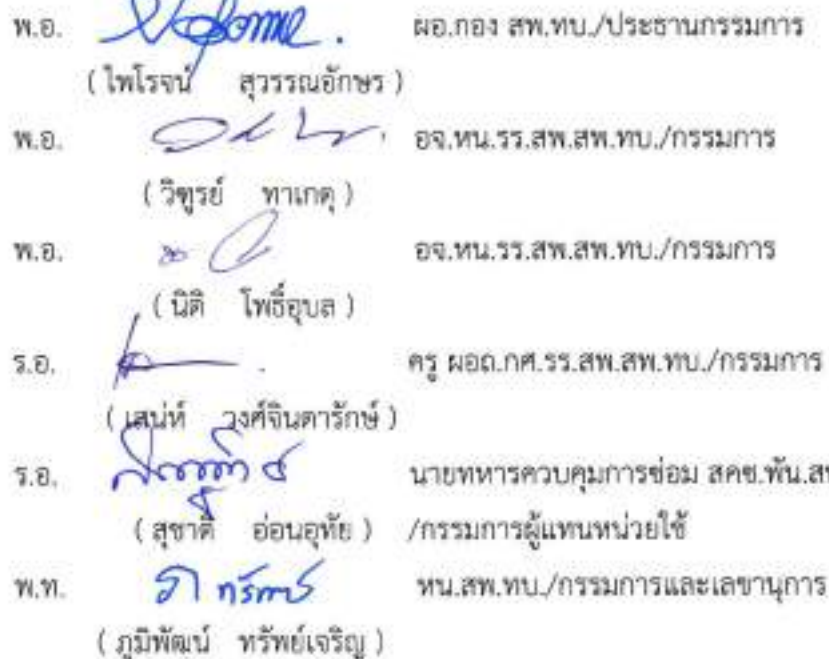 พ.อ. ผอ.กอง สพ.ทบ./ประธานกรรมการ
( ไพโรจน์ สุวรรณอักษร )
พ.อ. อจ.หน.รร.สพ.สพ.ทบ./กรรมการ
( วิฑูรย์ ทาเกตุ )
พ.อ. อจ.หน.รร.สพ.สพ.ทบ./กรรมการ
( นิติ โพธิ์อุบล )
ร.อ. ครู ผอถ.กศ.รร.สพ.สพ.ทบ./กรรมการ
( เสน่ห์ วงศ์จินดารักษ์ )
ร.อ. นายทหารควบคุมการซ่อม สคซ.พัน.
( สุชาติ อ่อนอุทัย ) /กรรมการผู้แทนหน่วยใช้
พ.ท. หน.สพ.ทบ./กรรมการและเลขานุการ
( ภูมิพัฒน์ ทรัพย์เจริญ )